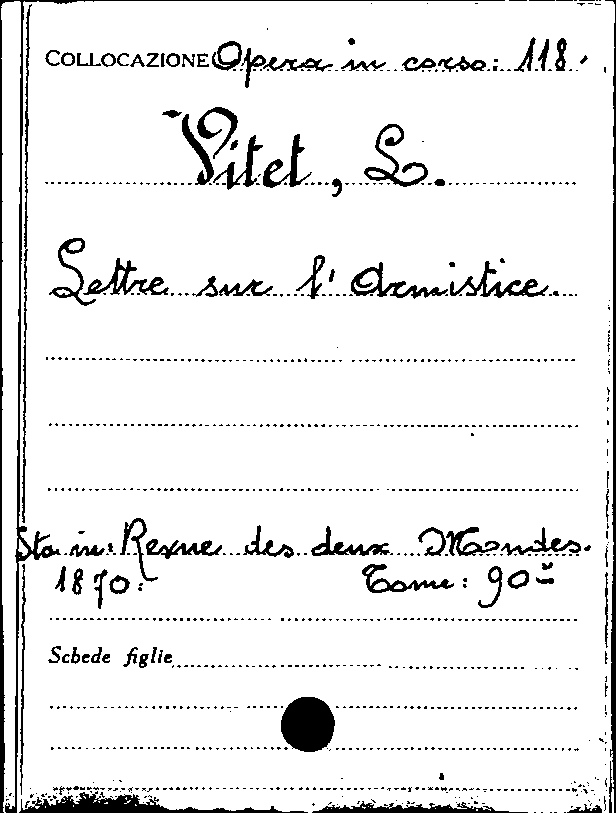 COLLOCAZIONE Opera in corso: 118.
Vitet, L.
Lettre sur l'Armistice.
Sta in: Revue des deux Mondes.
1870: Tome: 90º
Schede figlie